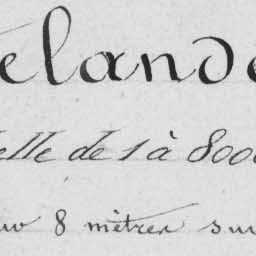 elande
elle de 1 à 800
8 mètres sur